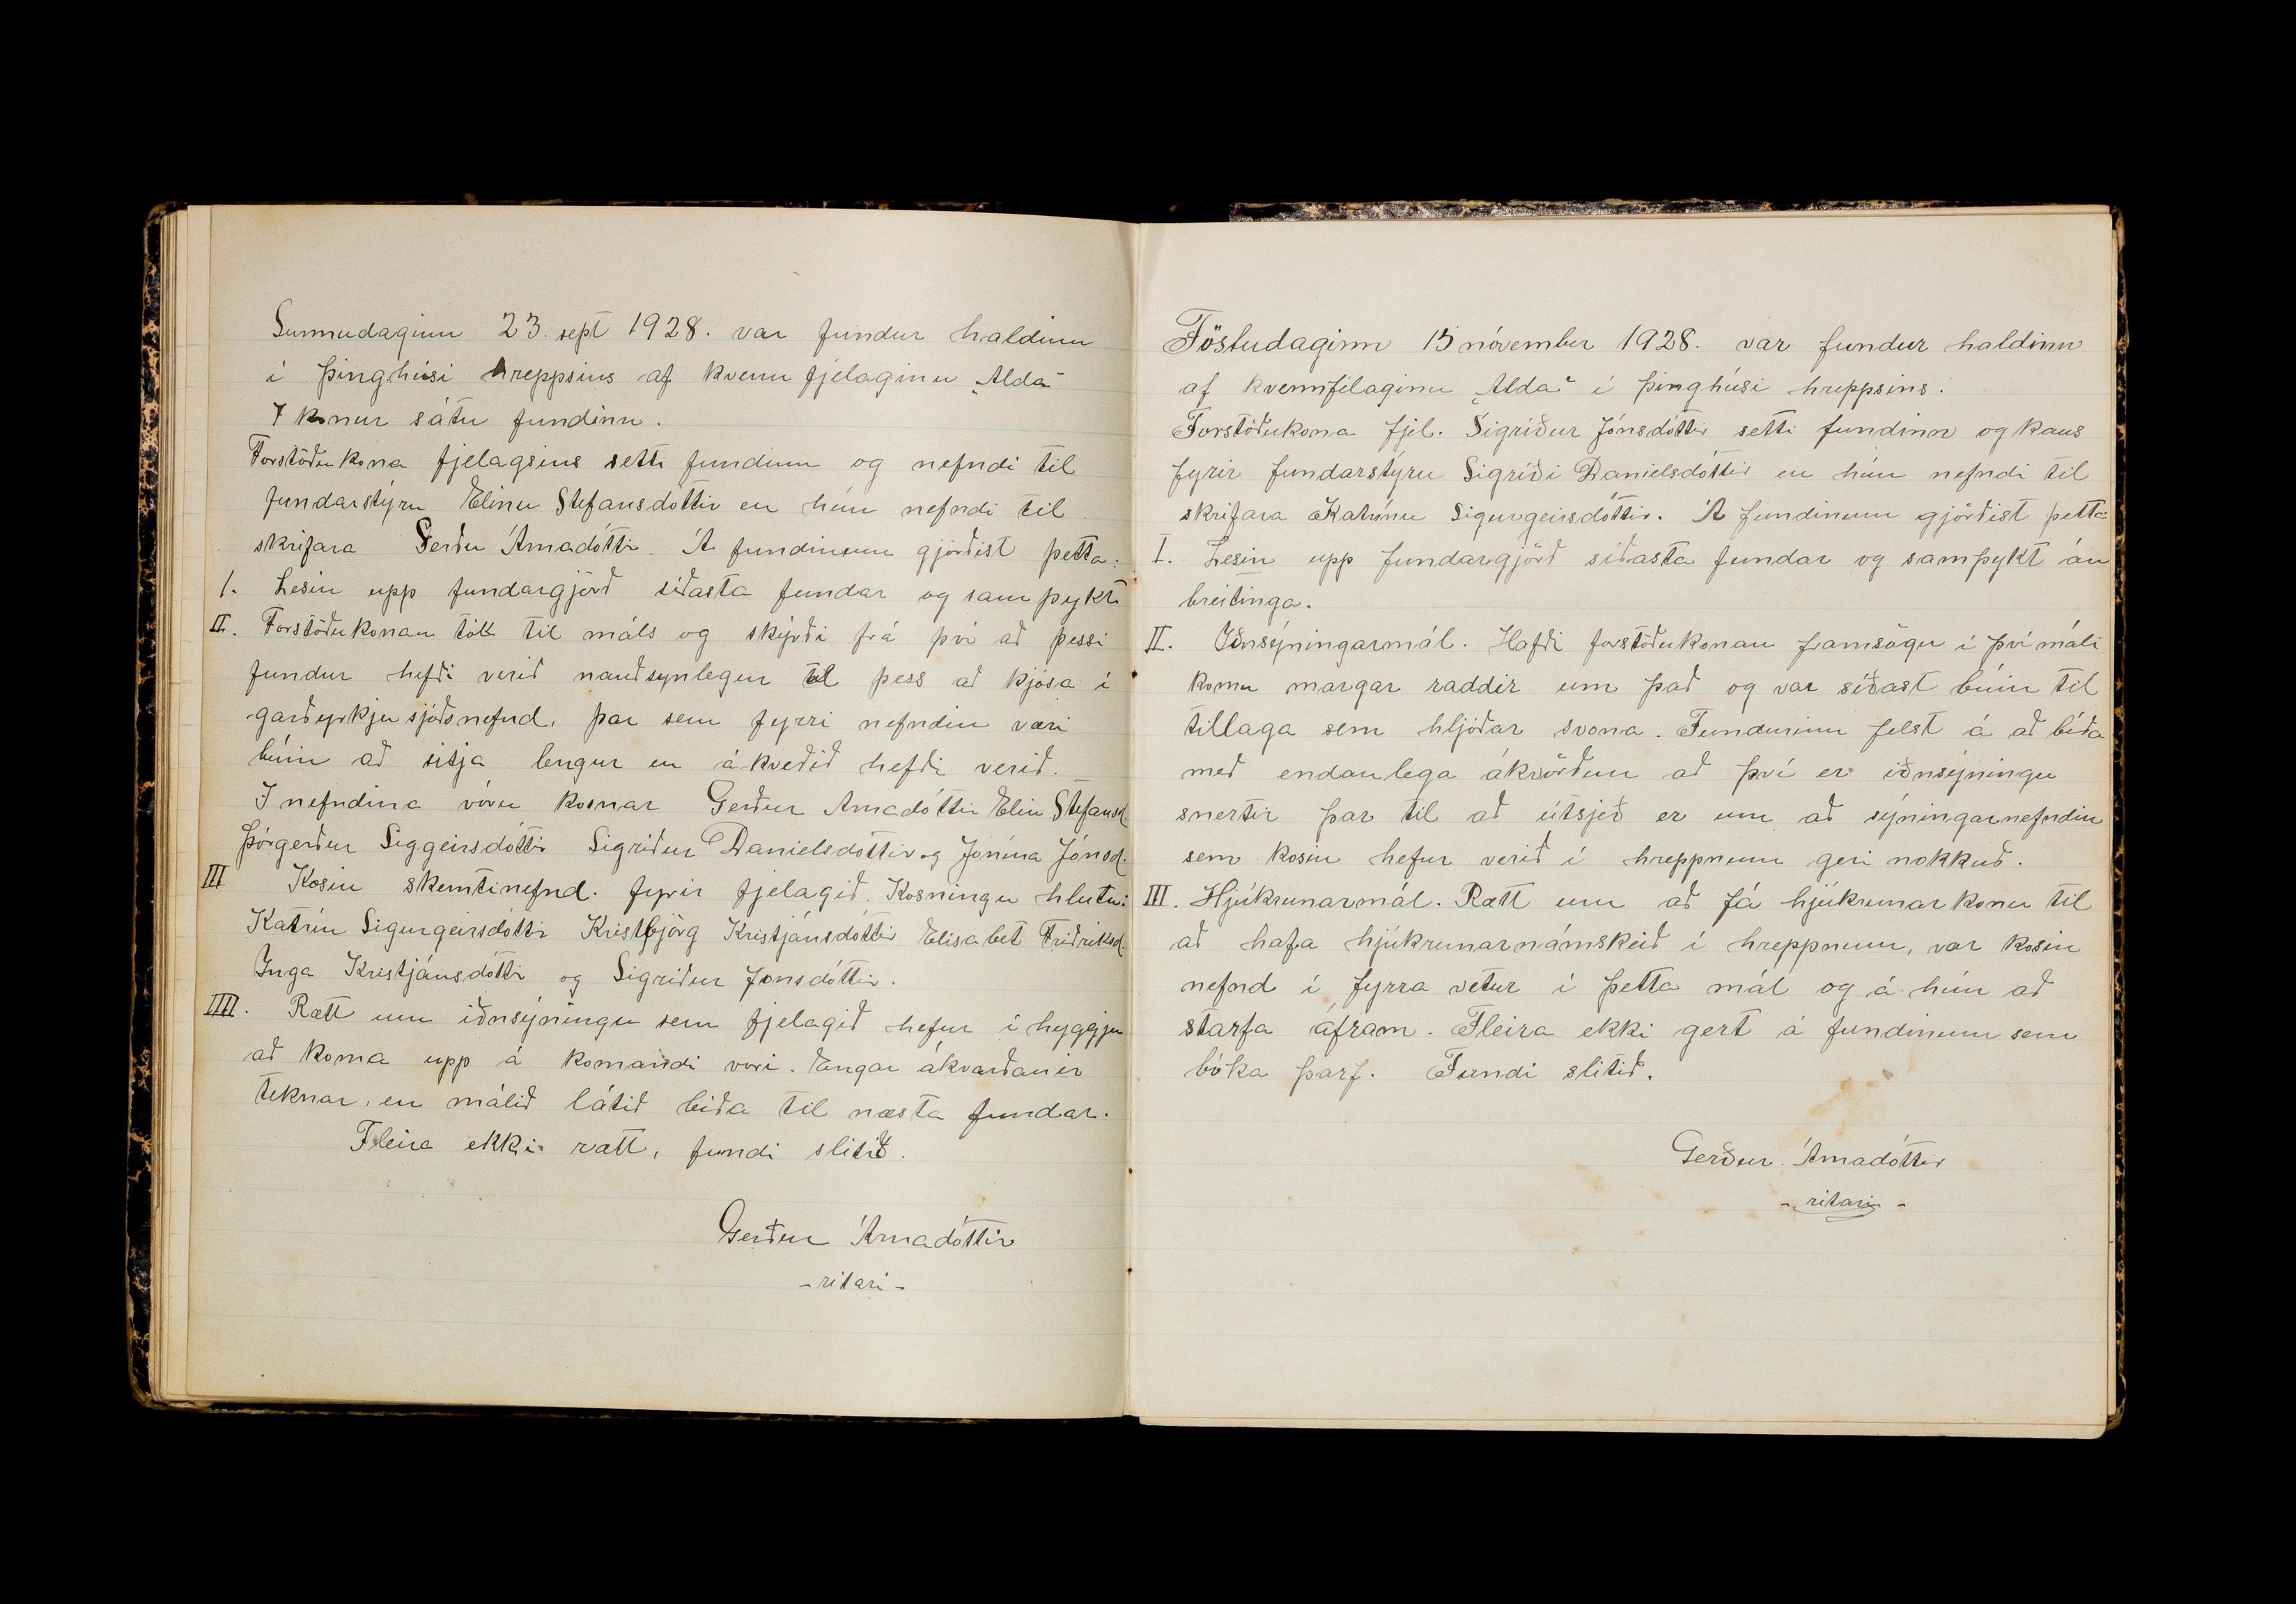 Sunnudaginn 23. sept 1928. var fundur haldinn
í þinghúsi hreppsins af kvennfjelaginu „Alda"
7 konur sátu fundinn.
Forstöðukona fjelagsins setti fundinn og nefndi til
fundarstýru Elinu Stefansdóttir en hún nefndi til
skrifara Gerðu Árnadóttir. Á fundinum gjörðist þetta:
I. Lesin upp fundargjörð síðasta fundar og samþykt
II. Forstöðukonan tók til máls og skýrði frá því að þessi
fundur hefði verið nauðsynlegur til þess að kjósa í
garðyrkjusjóðsnefnd, þar sem fyrri nefndin væri
búin að sitja lengur en ákveðið hefði verið.
I nefndina vóru kosnar Gerður Arnadóttir Elin Stefansd
Þórgerður Siggeirsdóttir Sigriður Danielsdottir og Jónína Jónsd.
III Kosin skemtinefnd. fyrir fjelagið. Kosningu hlutu:
Katrín Sigurgeirsdóttir Kristbjörg Kristjánsdóttir Elisabet Friðriksd
Inga Kristjánsdóttir og Sigriður Jonsdóttir.
IIII. Rætt um iðnsýningu sem fjelagið hefur í hyggju
að koma upp á komandi vori. Engar ákvarðanir
teknar, en málið látið bíða til næsta fundar.
Fleira ekki rætt, fundi slitið.
Gerður Árnadóttir
- ritari -
Föstudaginn 15 nóvember 1928. var fundur haldinn
af kvennfélaginu „Alda" í þinghúsi hreppsins.
Forstöðukona fjel. Sigríður Jónsdóttir setti fundinn og kaus
fyrir fundarstýru Sigríði Danielsdóttir en hún nefndi til
skrifara Katrínu Sigurgeirsdóttir. Á fundinum gjörðist þetta:
I. Lesin upp fundargjörð síðasta fundar og samþykt án
breitinga.
II. Iðnsýningarmál. Hafði forstöðukonan framsögu í því máli
komu margar raddir um það og var síðast búin til
tillaga sem hljóðar svona. Fundurinn felst á að bíða
með endanlega ákvörðun að því er iðnsýningu
snertir þar til að útsjeð er um að sýningarnefndin
sem kosin hefur verið í hreppnum geri nokkuð.
III. Hjúkrunarmál. Rætt um að fá hjúkrunarkonu til
að hafa hjúkrunarnámskeið í hreppnum, var kosin
nefnd í fyrra vetur í þetta mál og á hún að
starfa áfram. Fleira ekki gert á fundinum sem
bóka þarf. Fundi slitið.
Gerður. Árnadóttir
- ritari -